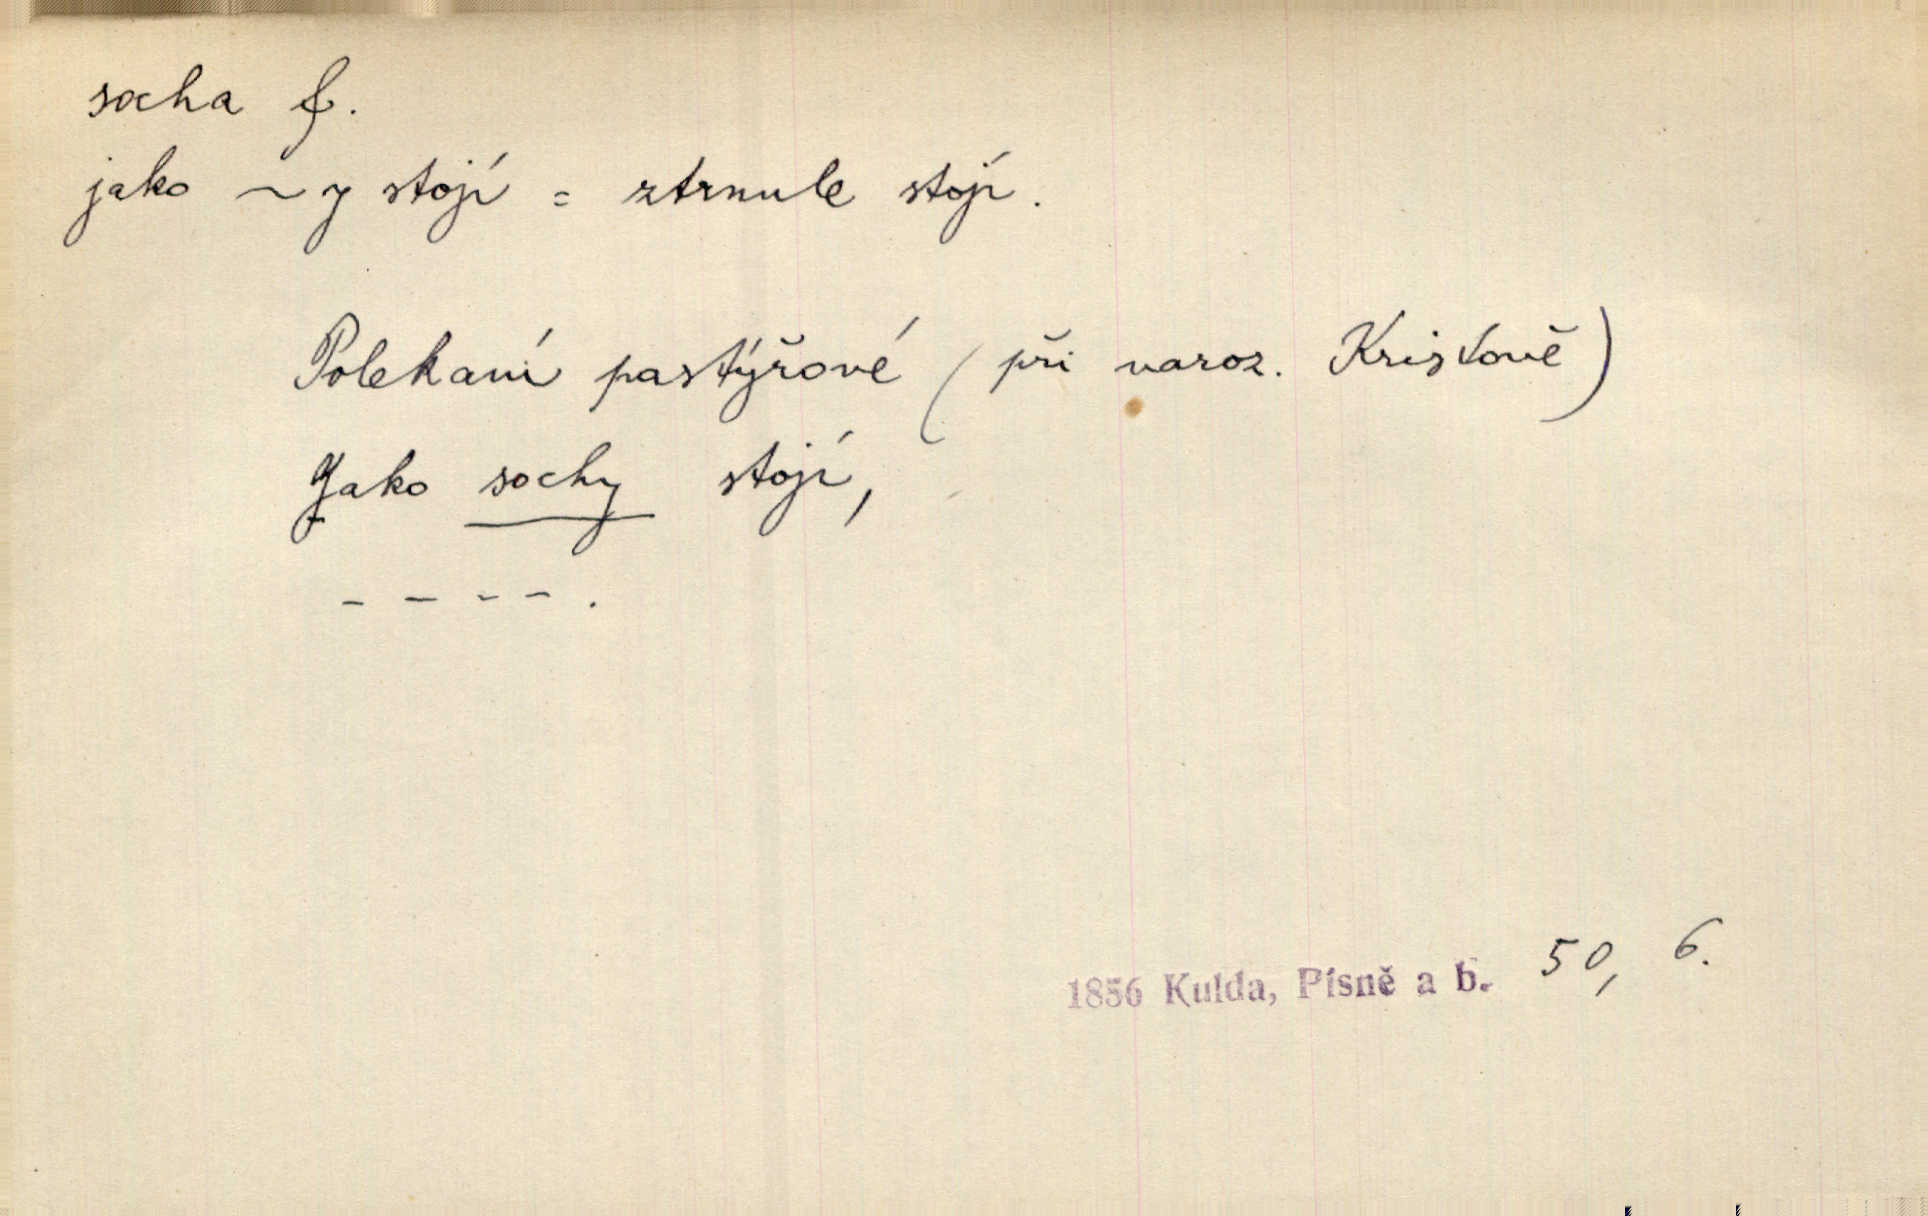 socha f.
jako ~y stojí = ztrnule stojí.
Polekaní pastýřové (při naroz. Kristově)
Jako sochy stojí,
- - - - .
1856 Kulda, Písně a b. 50, 6.